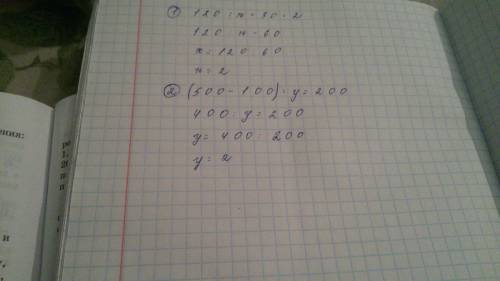 ① 120 : x = 30 · 2
120 : x = 60
x = 120 : 60
x = 2
② (500 - 100) : y = 200
400 : y = 200
y = 400 : 200
y = 2
ения:
и